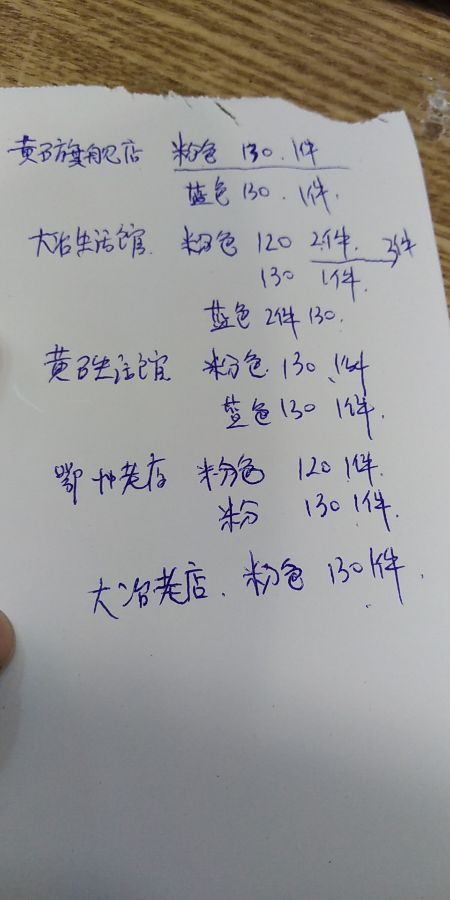 黄石旗舰店 粉色 130. 1件
蓝色 130. 1件.
大冶生活馆. 粉色 120 2件. 2件
130 1件.
蓝色 2件 130.
黄石生活馆 粉色 130、1件
蓝色 130 1件.
鄂州老店 粉色 120 1件.
粉 130 1件.
大冶老店. 粉色 130 1件.